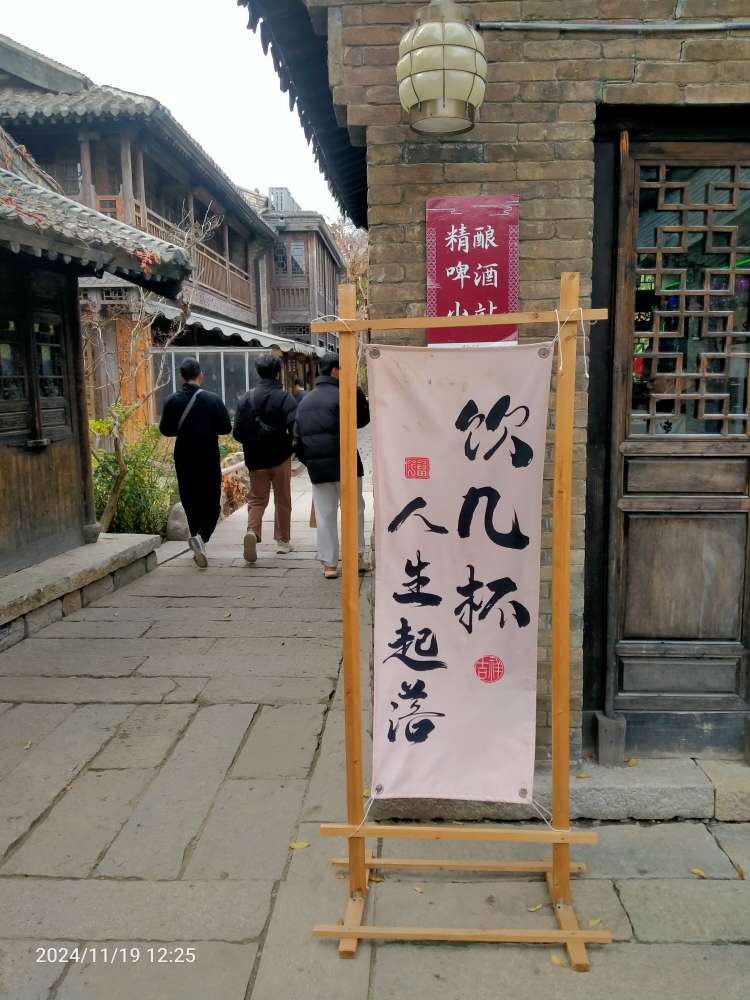 精酿
啤酒
小站
饮几杯
人生起落
吉祥
2024/11/19 12:25